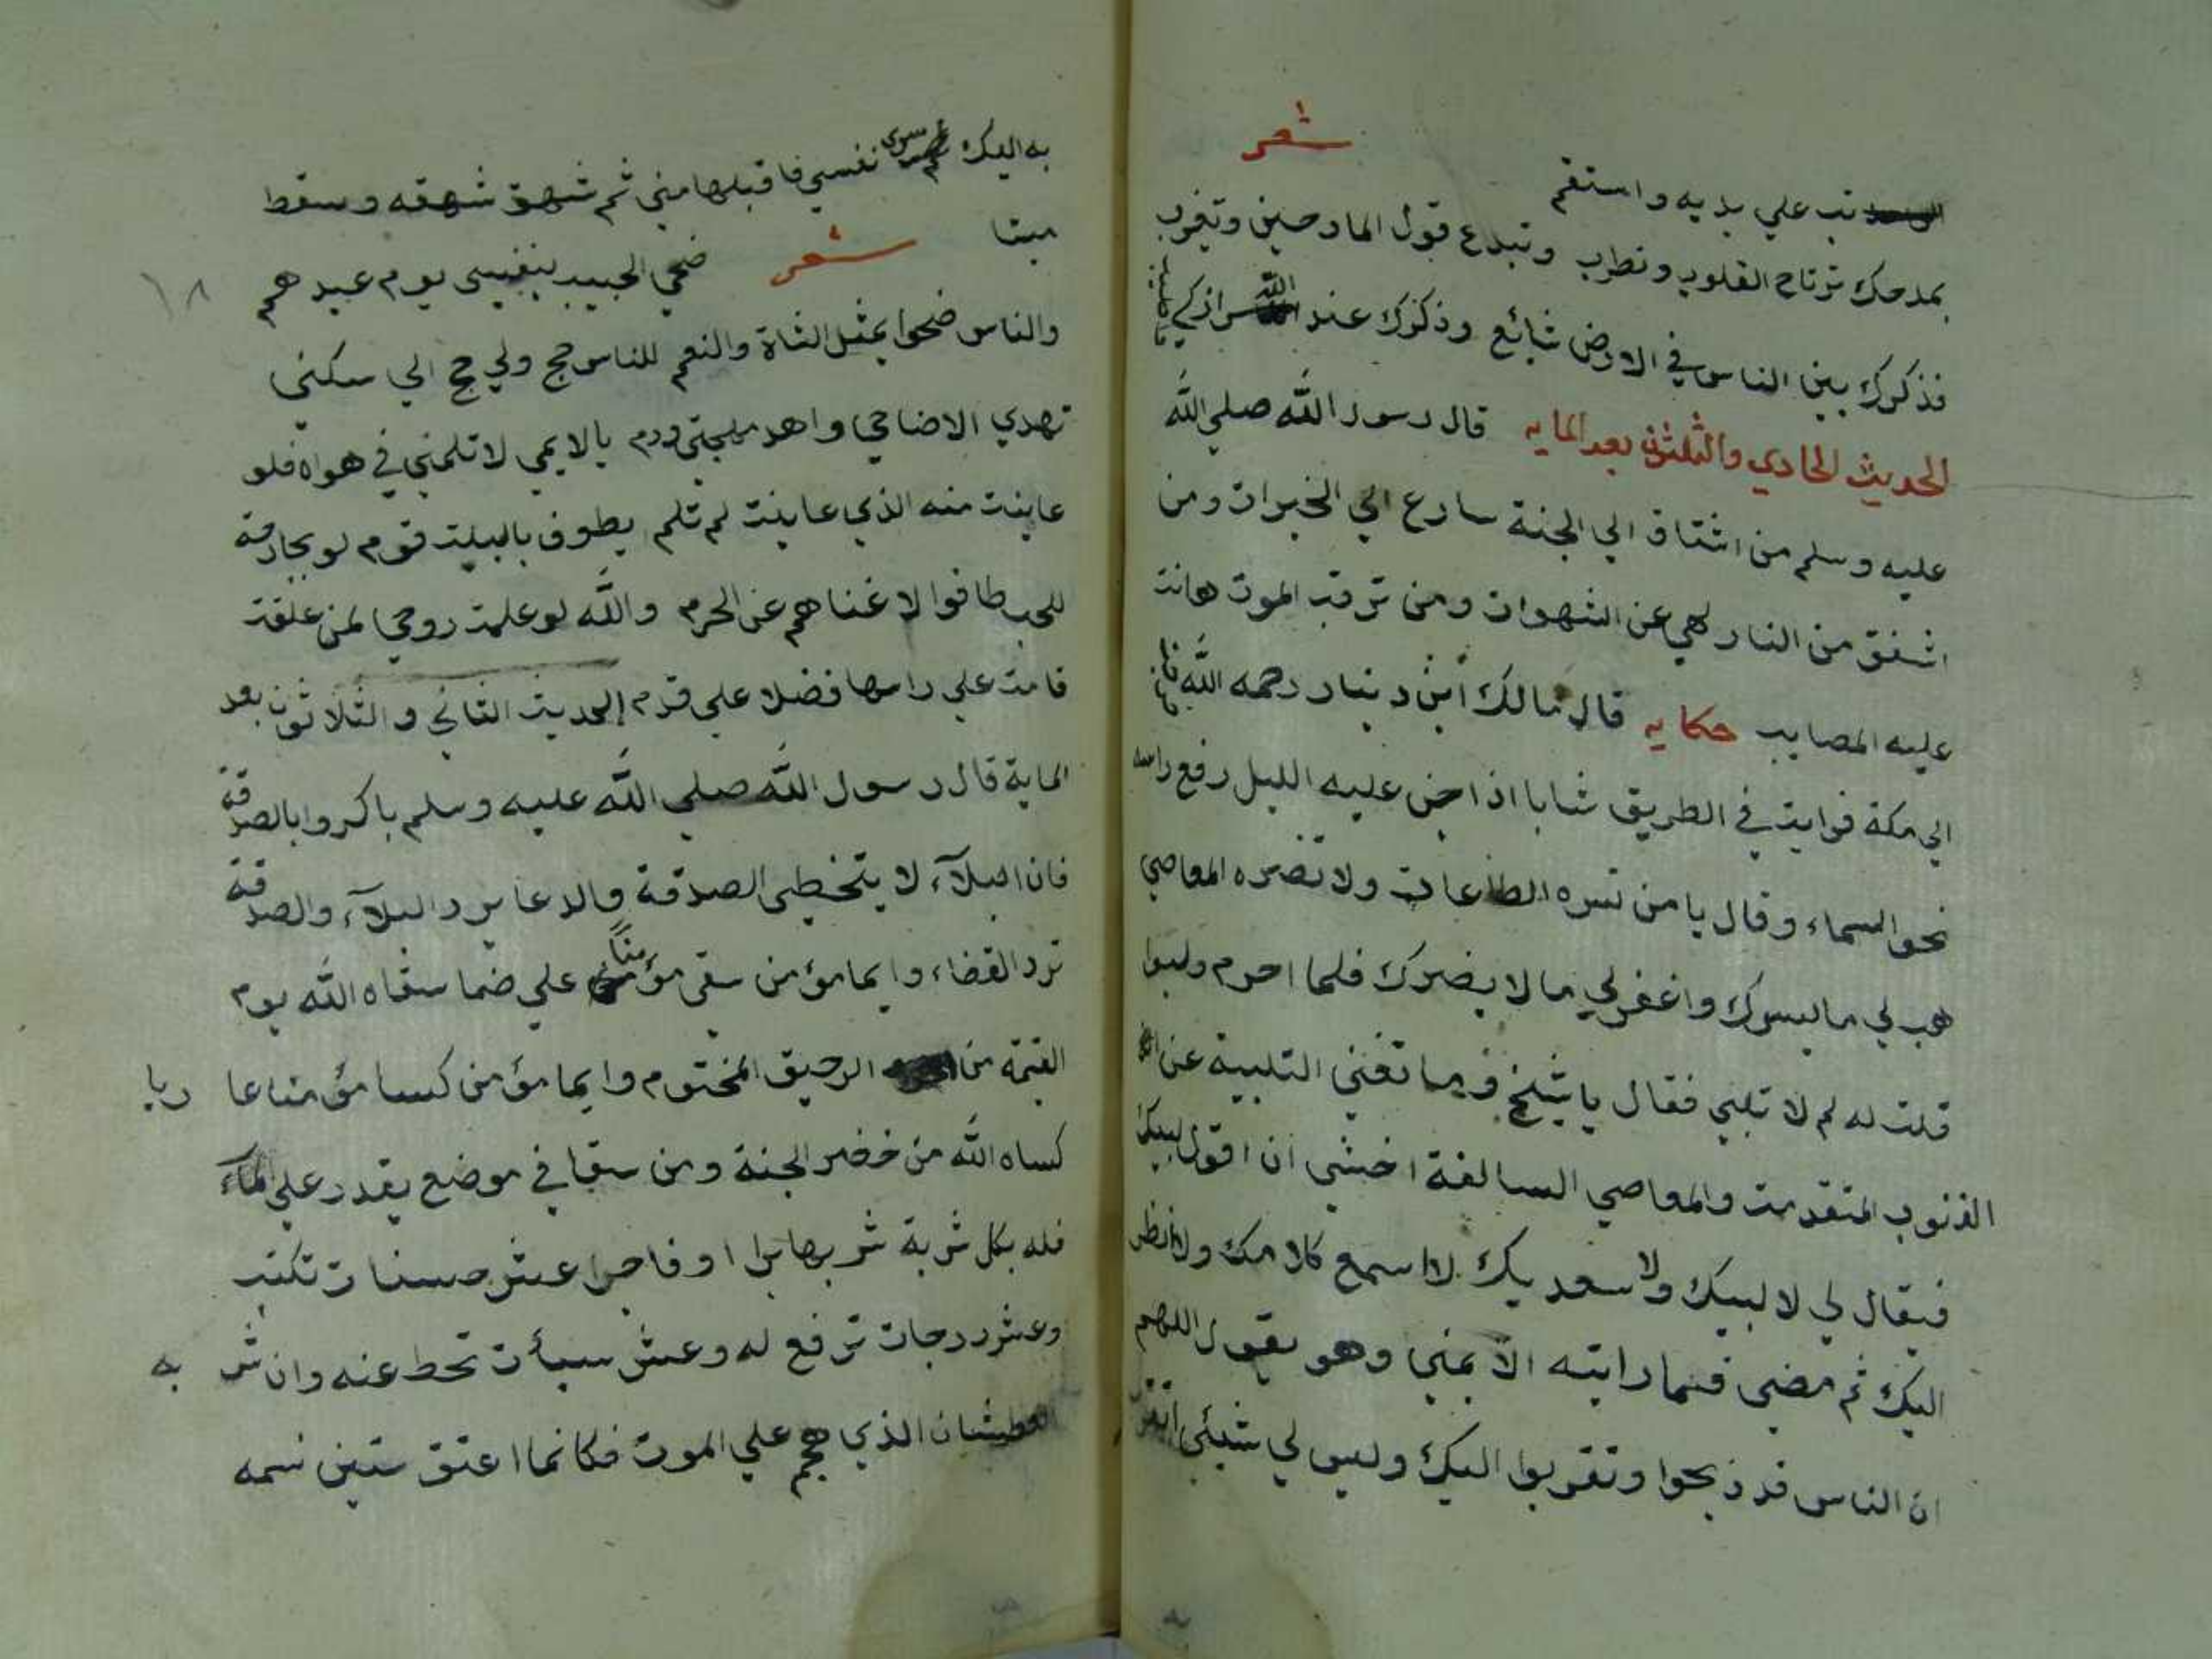 تب علي يديه واستقم شعر
بمدحك ترتاح القلوب وتطرب وتبدع قول المادحين وتغرب
فذكرك بين الناس في الارض شائع وذكرك عند الله ازكي
الحديث الحادي والثلثون بعد المايه قال رسول الله صلي الله
عليه وسلم من اشتاق الي الجنة سارع الي الخيرات ومن
اشفق من النار لهي عن الشهوات ومن ترقب الموت هانت
عليه المصايب حكايه قال مالك ابن دينار رحمه الله
الي مكة فرايت في الطريق شابا اذا جن عليه الليل رفع راسه
نحو السماء وقال يا من تسره الطاعات ولا تضره المعاصي
هب لي ما يسرك واغفر لي ما لا يضرك فلما احرم ولبوا
قلت له لم لا تلبي فقال يا شيخ وما تغني التلبية عن
الذنوب المتقدمت والمعاصي السالفة اخشي ان اقول لبيك
فيقال لي لا لبيك ولا سعديك لا اسمع كلامك ولا انظر
اليك ثم مضي فما رايته الا بمني وهو يقول اللهم
ان الناس قد ذبحوا وتقربوا اليك وليس لي شيئي اتقرب
به اليك سوي نفسي فاقبلها مني ثم شهق شهقه وسقط
ميتا شعر ضحي الحبيب بنفسي يوم عيدهم
١٨
والناس ضحوا بمثل الشاة والنعم للناس حج ولي حج الي سكني
تهدي الاضاحي واهد مهجتي ودم يا لايمي لا تلمني في هواه فلو
عاينت منه الذي عاينت لم تلم يطوف بالبيت قوم لو بجارحة
للحب طافوا لاغناهم عن الحرم والله لو علمت روحي لمن علقت
قامت علي راسها فضلا علي قدم الحديث الثاني والثلاثون بعد
الماية قال رسول الله صلي الله عليه وسلم باكروا بالصدقة
فان البلآء لا يتخطي الصدقة والدعا يرد البلآء والصدقة
ترد القضاء وايما مؤمن سقي مؤمنًا علي ضما سقاه الله يوم
القيمة من الرحيق المختوم وايما مؤمن كسا مؤمنا عا ريا
كساه الله من خضر الجنة ومن سقا في موضع يقدر علي المآء
فله بكل شربة شربها برا او فاجرا عشر حسنات تكتب
وعشر درجات ترفع له وعشر سيأت تحط عنه وان شر به
العطشان الذي هجم علي الموت فكانما اعتق ستين نسمه